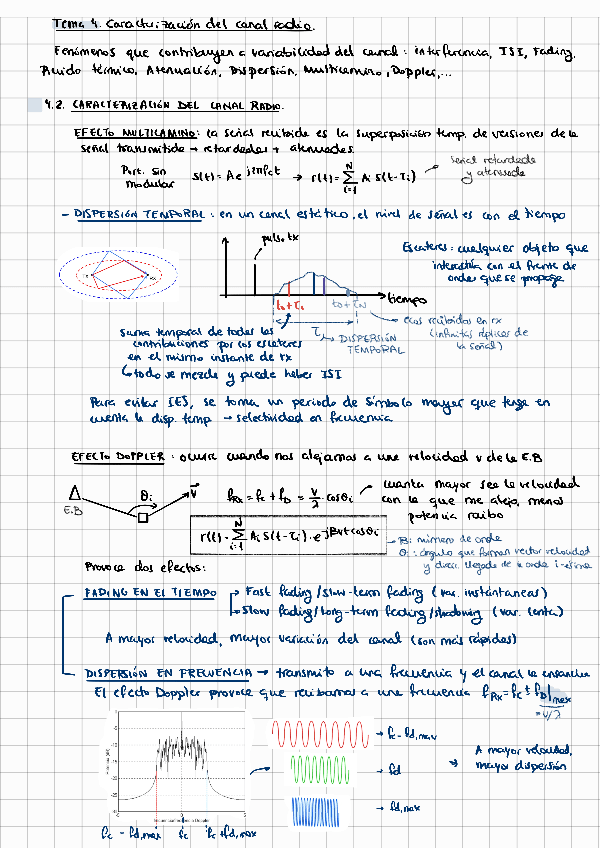 Tema 4. Caracterización del canal radio.
Fenómenos que contribuyen a variabilidad del canal: interferencia, ISI, Fading,
Ruido térmico, Atenuación, Dispersión, Multicamino, Doppler,...
4.2. CARACTERIZACIÓN DEL CANAL RADIO.
EFECTO MULTICAMINO: la señal recibida es la superposición temp. de versiones de la
señal transmitida → retardadas + atenuadas.
Port. sin modular S(t) = A e^{j2πfct} → r(t) = Σ_{i=1}^{N} Ai s(t-τi)
señal retardada
y atenuada
- DISPERSIÓN TEMPORAL: en un canal estático, el nivel de señal es con el tiempo
pulso tx
Escateres: cualquier objeto que
interactúa con el frente de
ondas que se propaga
to+τ1
to+τN
tiempo
ecos recibidos en rx
(infinitas réplicas de
la señal)
τ → DISPERSIÓN
TEMPORAL
suma temporal de todas las
contribuciones por los escateres
en el mismo instante de rx
↳ todo se mezcla y puede haber ISI
Para evitar IES, se toma un periodo de símbolo mayor que tenga en
cuenta la disp. temp → selectividad en frecuencia
EFECTO DOPPLER: ocurre cuando nos alejamos a una velocidad v de la E.B
E.B
θi
v
fRx = fc + fD = v/λ · cosθi
cuanta mayor sea la velocidad
con la que me alejo, menos
potencia recibo
r(t) = Σ_{i=1}^{N} Ai s(t-τi) · e^{jβvt cosθi}
→ β: número de onda
θi: ángulo que forman vector velocidad
y direc. llegada de la onda i-ésima
Provoca dos efectos:
FADING EN EL TIEMPO → Fast fading / Slow-term fading (var. instantaneas)
→ Slow fading / Long-term fading / shadowing (var. lenta)
A mayor velocidad, mayor variación del canal (son más rápidas)
DISPERSIÓN EN FRECUENCIA → transmito a una frecuencia y el canal la ensancha
El efecto Doppler provoca que recibamos a una frecuencia fRx = fc ± fD|max
= v/λ
→ fc - fd,max
→ fd
→ fd,max
→ A mayor velocidad,
mayor dispersión
fc - fd,max fc fc + fd,max